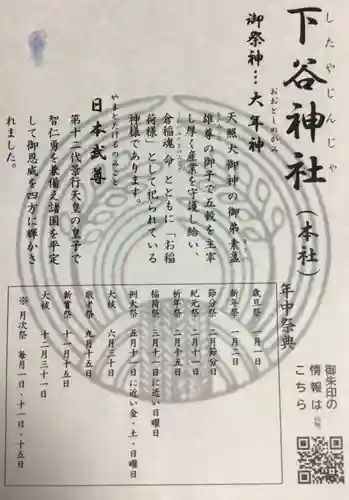 下谷神社（本社）
したやじんじゃ
御祭神…大年神
おおとしのかみ
天照大御神の御弟素盞
雄尊の御子で五穀を主宰
し厚く産業を守護し給い、
倉稲魂命とともに「お稲
荷様」として祀られている
神様であります。
日本武尊
やまとたけるのみこと
第十二代景行天皇の皇子で
智仁勇を兼備え諸国を平定
して御恩威を四方に輝かさ
れました。
年中祭典
歳旦祭 一月一日
新年祭 一月二日
節分祭 二月節分日
紀元祭 二月十一日
祈年祭 二月十五日
稲荷祭 三月十一日に近い日曜日
例大祭 五月十一日に近い金・土・日曜日
大祓 六月三十日
敬老祭 九月十五日
新嘗祭 十一月十五日
大祓 十二月三十一日
※月次祭 毎月一日・十一日・十五日
御朱印の
情報は
こちら